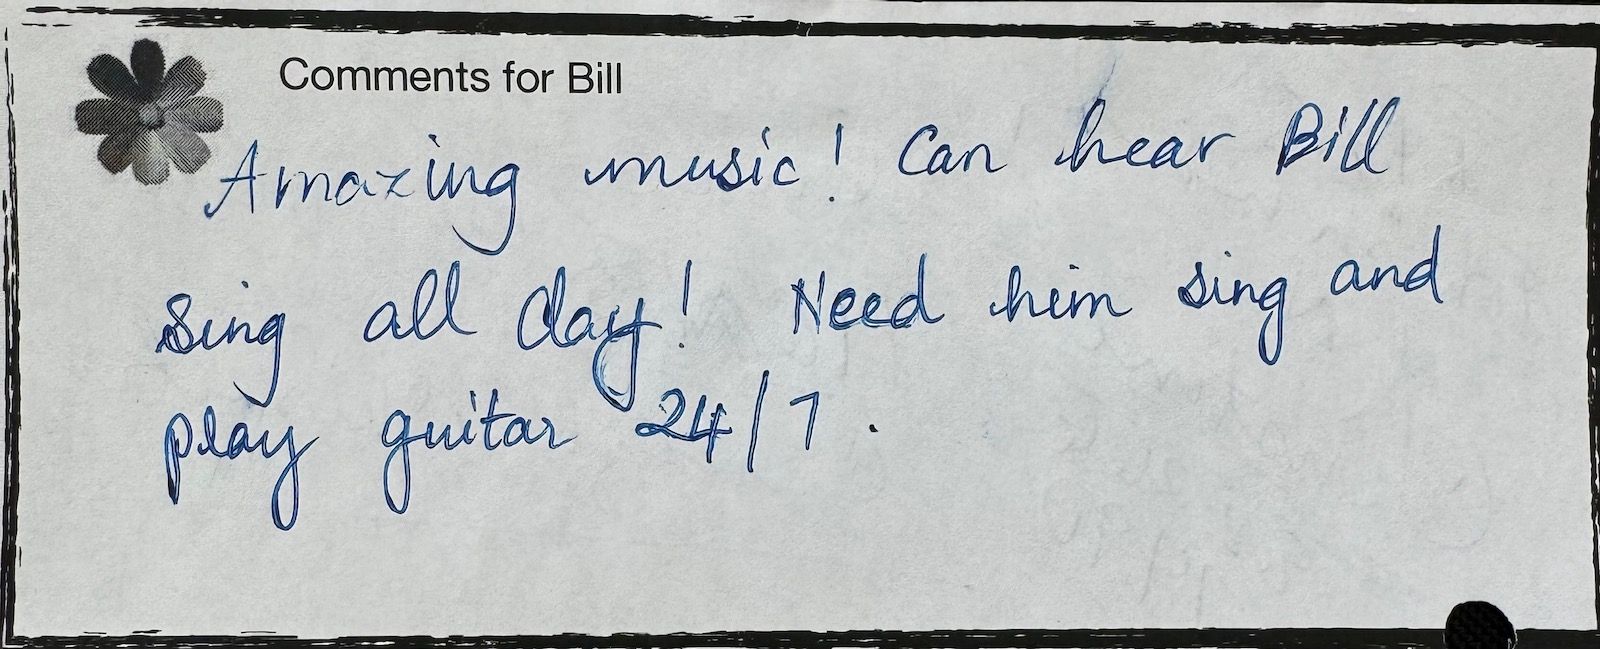 Comments for Bill
Amazing music! Can hear Bill
sing all day! Need him sing and
play guitar 24/7.